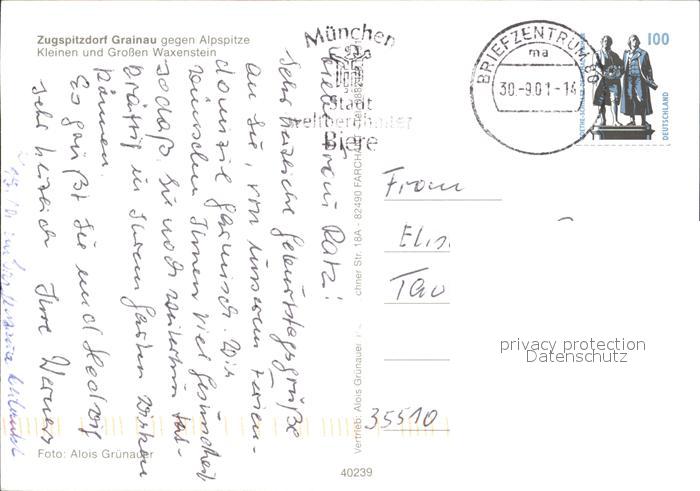 Zugspitzdorf Grainau gegen Alpspitze
Kleinen und Großen Waxenstein
München
Stadt
weltberühmter
Biere
BRIEFZENTRUM
ma
30.-9.01.-14
100
DEUTSCHLAND
Frau Ratz!
Sehr herzliche Geburtstagsgrüße
an Sie, von unserem Ferien-
domizil Garmisch. Wir
wünschen Ihnen viel Gesundheit
sodaß Sie noch weiterhin tat-
kräftig in Ihrem Garten wirken
können.
Es grüßt Sie und Hedwig
sehr herzlich Ihre
Vertrieb: Alois Grünauer
chner Str. 18A - 82490 FARCHA
Frau
Elis
Tau
35510
privacy protection
Datenschutz
Foto: Alois Grünauer
40239